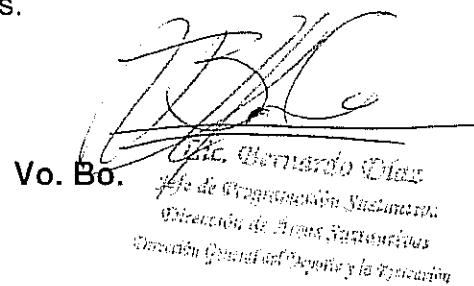 s.
Vo. Bo.
Lic. Bernardo Díaz
Jefe de Programación Sustantiva
Dirección de Áreas Sustantivas
Dirección General del Deporte y la Recreación